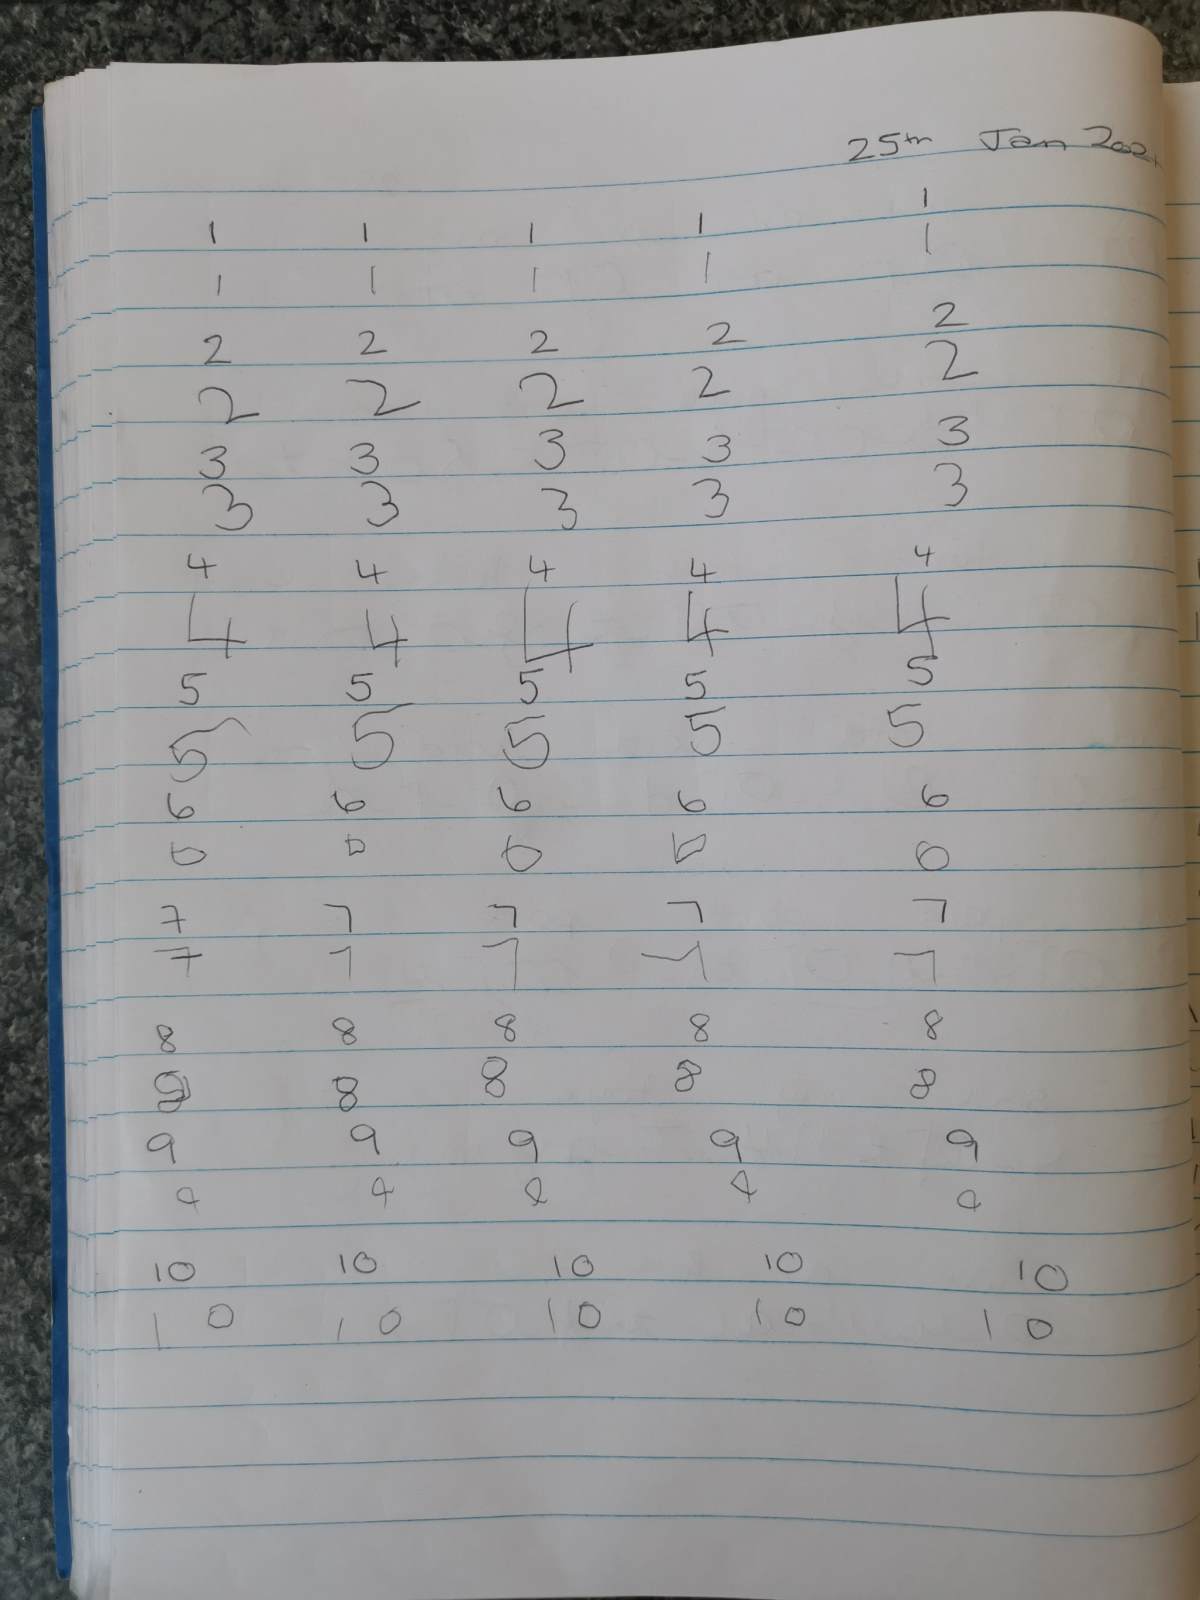 25th Jan 202
1 1 1 1 1
1 1 1 1 1
2 2 2 2 2
2 2 2 2 2
3 3 3 3 3
3 3 3 3 3
4 4 4 4 4
4 4 4 4 4
5 5 5 5 5
5 5 5 5 5
6 6 6 6 6
6 6 6 6 6
7 7 7 7 7
7 7 7 7 7
8 8 8 8 8
8 8 8 8 8
9 9 9 9 9
9 9 9 9 9
10 10 10 10 10
10 10 10 10 10